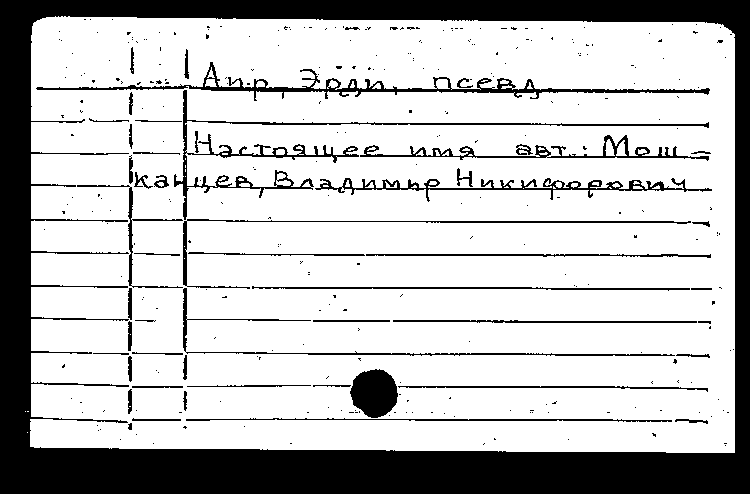 Аир, Эрди, псевд.
Настоящее имя авт.: Мош-
канцев, Владимир Никифорович